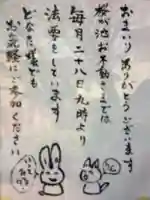 おまいりありがとうございます
桜が池お不動さまでは
毎月二十八日九時より
法要をしています
どなた様でも
お気軽にご参加ください